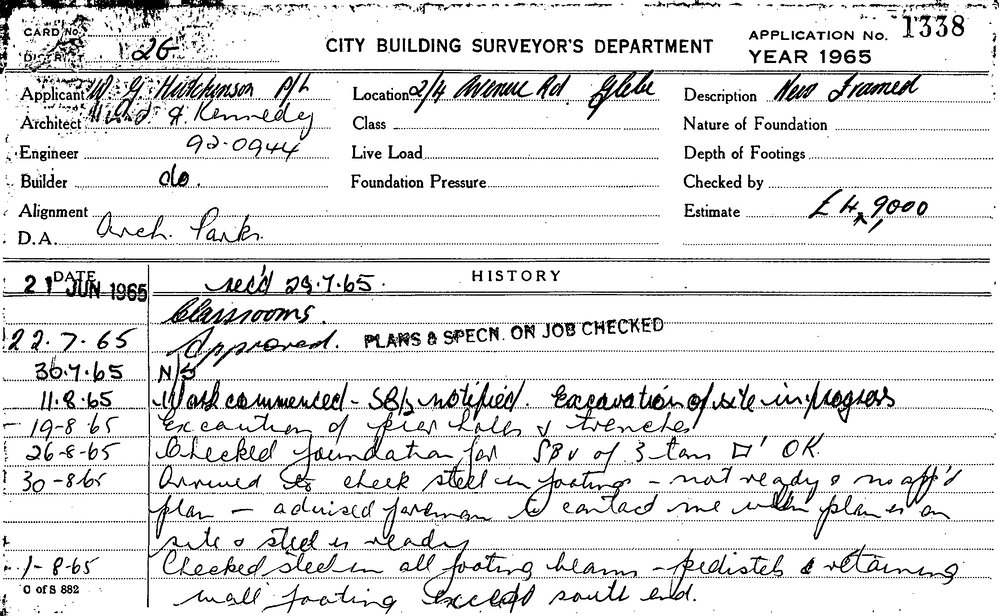 CARD No.
DISTRICT 26
CITY BUILDING SURVEYOR'S DEPARTMENT
APPLICATION No. 1338
YEAR 1965
Applicant W. G. Hutchinson P/L
Location 2/4 Avenue Rd. Glebe
Description New Framed
Architect & J. Kennedy
Class
Nature of Foundation
Engineer 92-0944
Live Load
Depth of Footings
Builder do.
Foundation Pressure
Checked by
Alignment
Estimate £ 49,000
D.A. Arch. Parks.
DATE
HISTORY
21 JUN 1965 rec'd 29.7.65.
Classrooms.
22.7.65 Approved. PLANS & SPECN. ON JOB CHECKED
30.7.65 N/S
11.8.65 Work commenced - SB/s notified. Excavation of site in progress
19-8-65 Excavtion of pier holes & trenches
26-8-65 Checked foundation for SBV of 3 tons □' OK.
30-8-65 Arrived to check steel in footings - not ready & no app'd
plan - advised foreman to contact me when plan is on
site & steel is ready
1-8-65 Checked steel in all footing beams - pedistels & retaining
wall footing except south end.
C of S 882